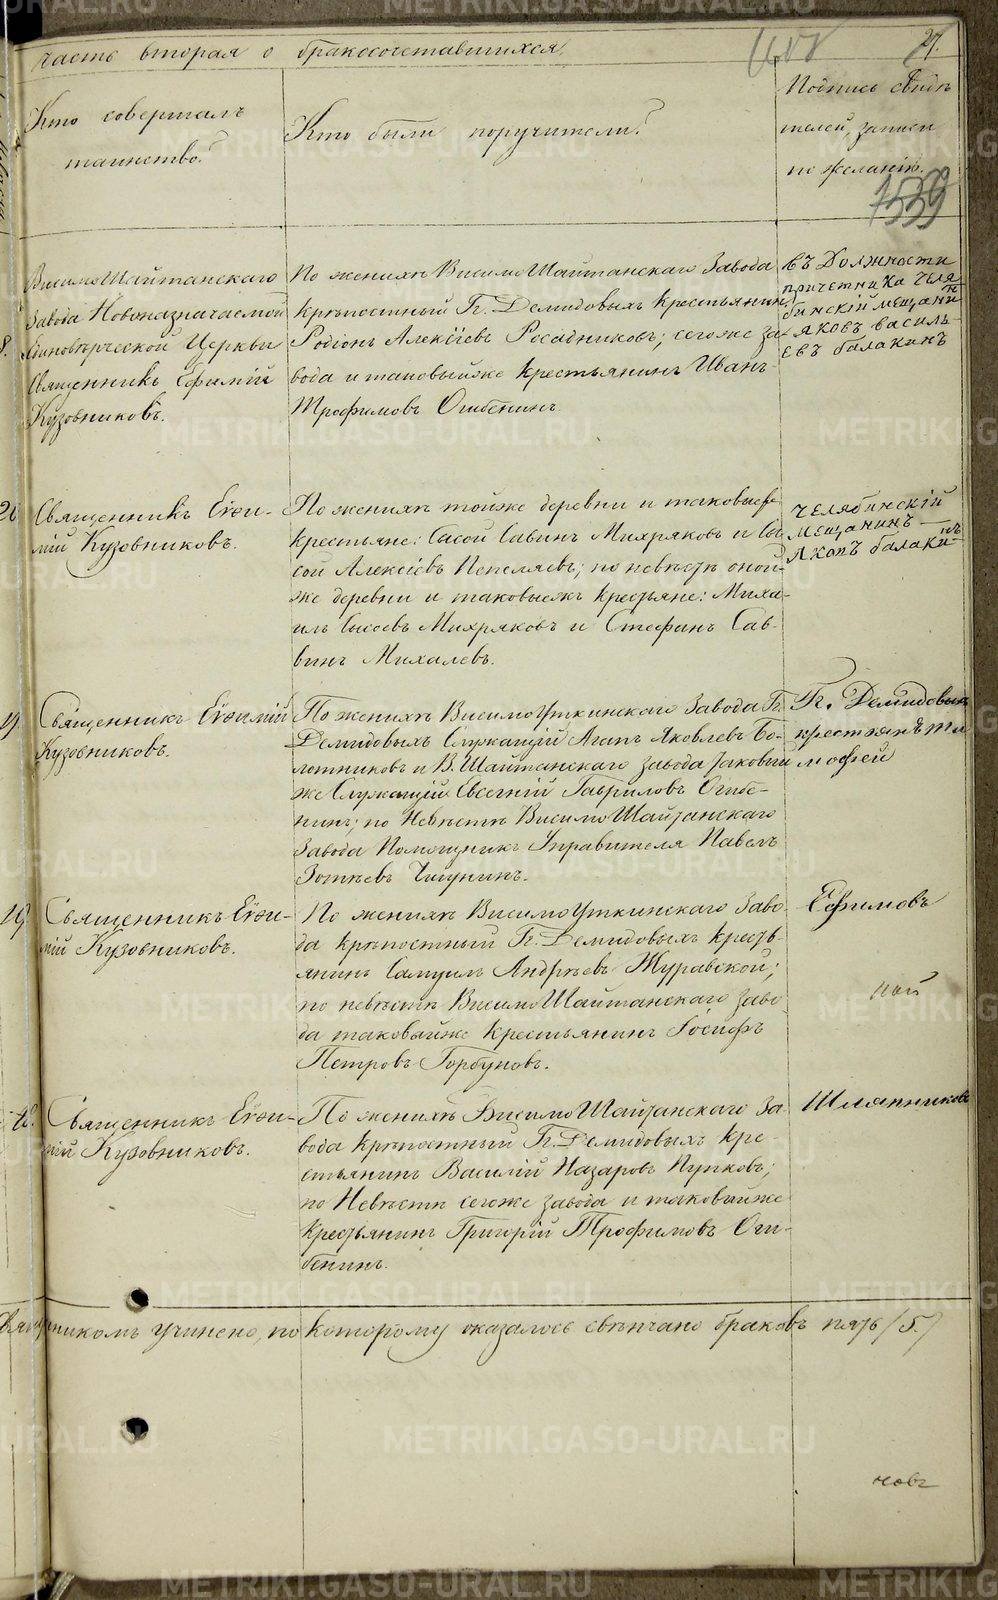 METRIKI.GASO-URAL.RU
часть вторая о бракосочетавшихся
27.
Кто совершалъ
таинство?
Кто были поручители?
Подпись свидѣ
телей, записи
по желанію.
1539
ВисимоШайтанскаго
завода Новоназначаемой
Единовѣрческой Церкви
Священникъ Ефимій
Кузовниковъ.
По женихѣ ВисимоШайтанскаго Завода
крѣпостный Гг. Демидовыхъ крестьянинъ
Родіонъ Алексѣевъ Росадниковъ; сегоже за-
вода и таковыйже крестьянинъ Иванъ
Трофимовъ Огибенинъ.
Въ Должности
причетника Челя
бинскій мещанинъ
Яковъ василь-
евъ балакинъ
Священникъ Евѳи-
мій Кузовниковъ.
По женихѣ тойже деревни и таковыеже
крестьяне: Сасой Савинъ Михряковъ и Сы-
сой Алексѣевъ Пепеляевъ; по невѣстѣ оной-
же деревни и таковыежъ крестьяне: Миха-
илъ Сысоевъ Михряковъ и Стефанъ Сав-
винъ Михалевъ.
челябинскій
мещанинъ
Яковъ балакинъ
19.
Священникъ Евѳимій
Кузовниковъ.
По женихѣ ВисимоУткинскаго Завода Гг.
Демидовыхъ Служащій Агапъ Яковлевъ Бо-
лотниковъ и В. Шайтанскаго завода таковый
же Служащій Евгеній Гавриловъ Огибе-
нинъ; по Невѣстѣ ВисимоШайтанскаго
Завода Помощникъ Управителя Павелъ
Зотѣевъ Чигунинъ.
Гг. Демидовыхъ
крестьянъ Ти
мофей
19
Священникъ Евѳи-
мій Кузовниковъ.
По женихѣ ВисимоУткинскаго Заво-
да крѣпостный Гг. Демидовыхъ кресть-
янинъ Самуилъ Андрѣевъ Журавской;
по невѣстѣ ВисимоШайтанскаго Заво
да таковыйже крестьянинъ Іосифъ
Петровъ Горбуновъ.
Ефимовъ
Священникъ Евѳи-
мій Кузовниковъ.
По женихѣ ВисимоШайтанскаго За-
вода крѣпостный Гг. Демидовыхъ кре-
стьянинъ Василій Назаровъ Пупковъ;
по Невѣстѣ сегоже завода и таковыйже
крестьянинъ Григорій Трофимовъ Оги-
бенинъ.
Шляпниковъ
учинено, по которому оказалось свѣнчано браковъ пять /5./
новъ